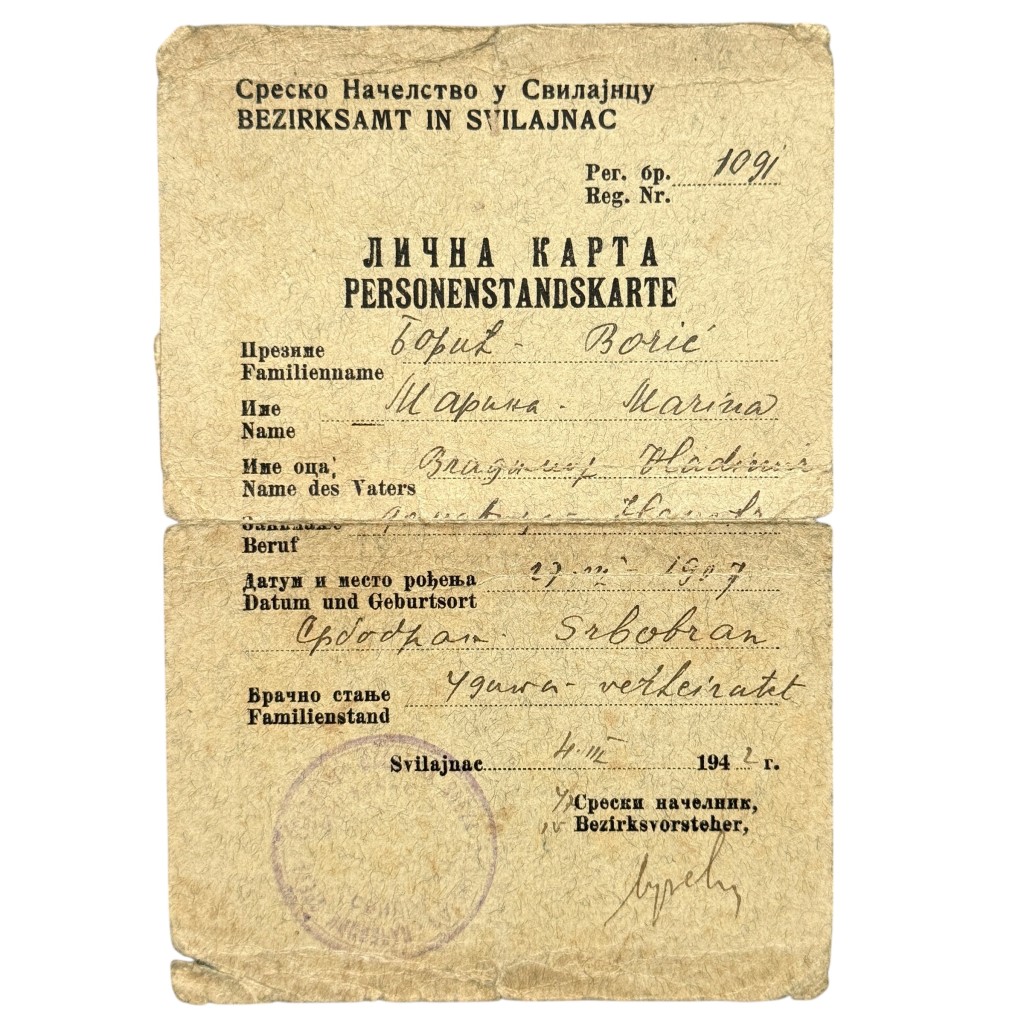 Среско Начелство у Свилајнцу
BEZIRKSAMT IN SVILAJNAC
Рег. бр. 1091
Reg. Nr.
ЛИЧНА КАРТА
PERSONENSTANDSKARTE
Презиме Борић - Borić
Familienname
Име Марина - Marina
Name
Име оца, Владимир Vladimir
Name des Vaters
Занимање
Beruf
Датум и место рођења 27. III - 1907
Datum und Geburtsort
Србобран - Srbobran
Брачно стање Удата - verheiratet
Familienstand
Svilajnac 4. III 1942 г.
Срески начелник,
Bezirksvorsteher,